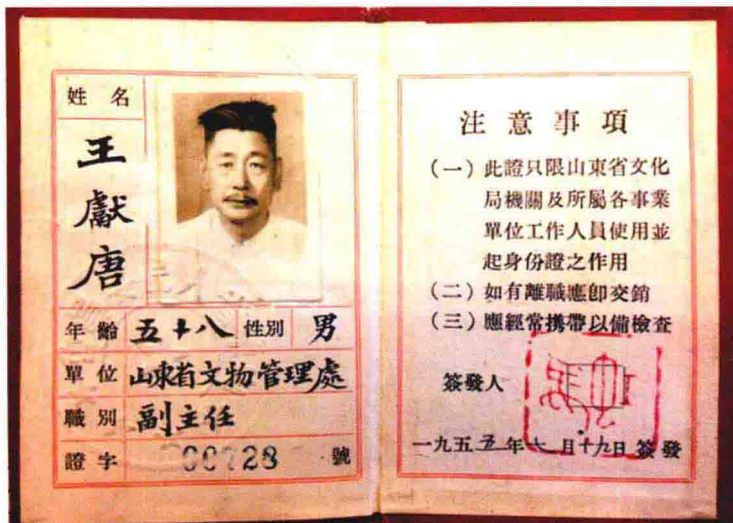 姓名
王獻唐
年齡 五十八 性別 男
單位 山東省文物管理處
職別 副主任
證字 00728 號
注意事項
(一) 此證只限山東省文化
局機關及所屬各事業
單位工作人員使用並
起身份證之作用
(二) 如有離職應卽交銷
(三) 應經常携帶以備檢查
簽發人
一九五五年十月十九日簽發